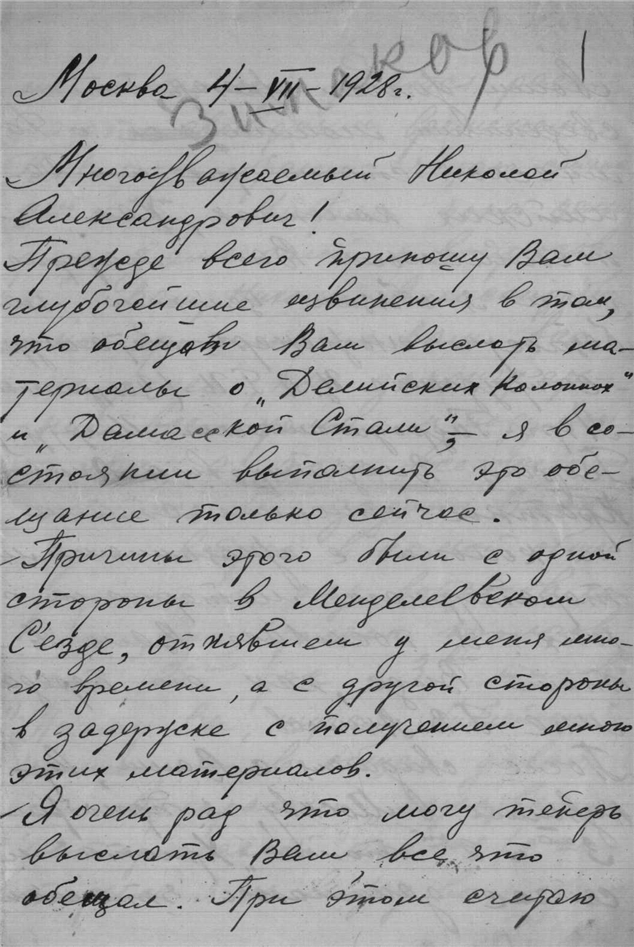 1
Москва 4-VII-1928г.
Многоуважаемый Николай
Александрович!
Прежде всего приношу Вам
глубочайшие извинения в том,
что обещав Вам выслать ма-
териалы о „Делийских Колоннах"
и „Дамасской Стали", – я в со-
стоянии выполнить это обе-
щание только сейчас.
Причины этого были с одной
стороны в Менделеевском
С'езде, отнявшем у меня мно-
го времени, а с другой стороны
в задержке с получением мною
этих материалов.
Я очень рад что могу теперь
выслать Вам все, что
обещал. При этом считаю